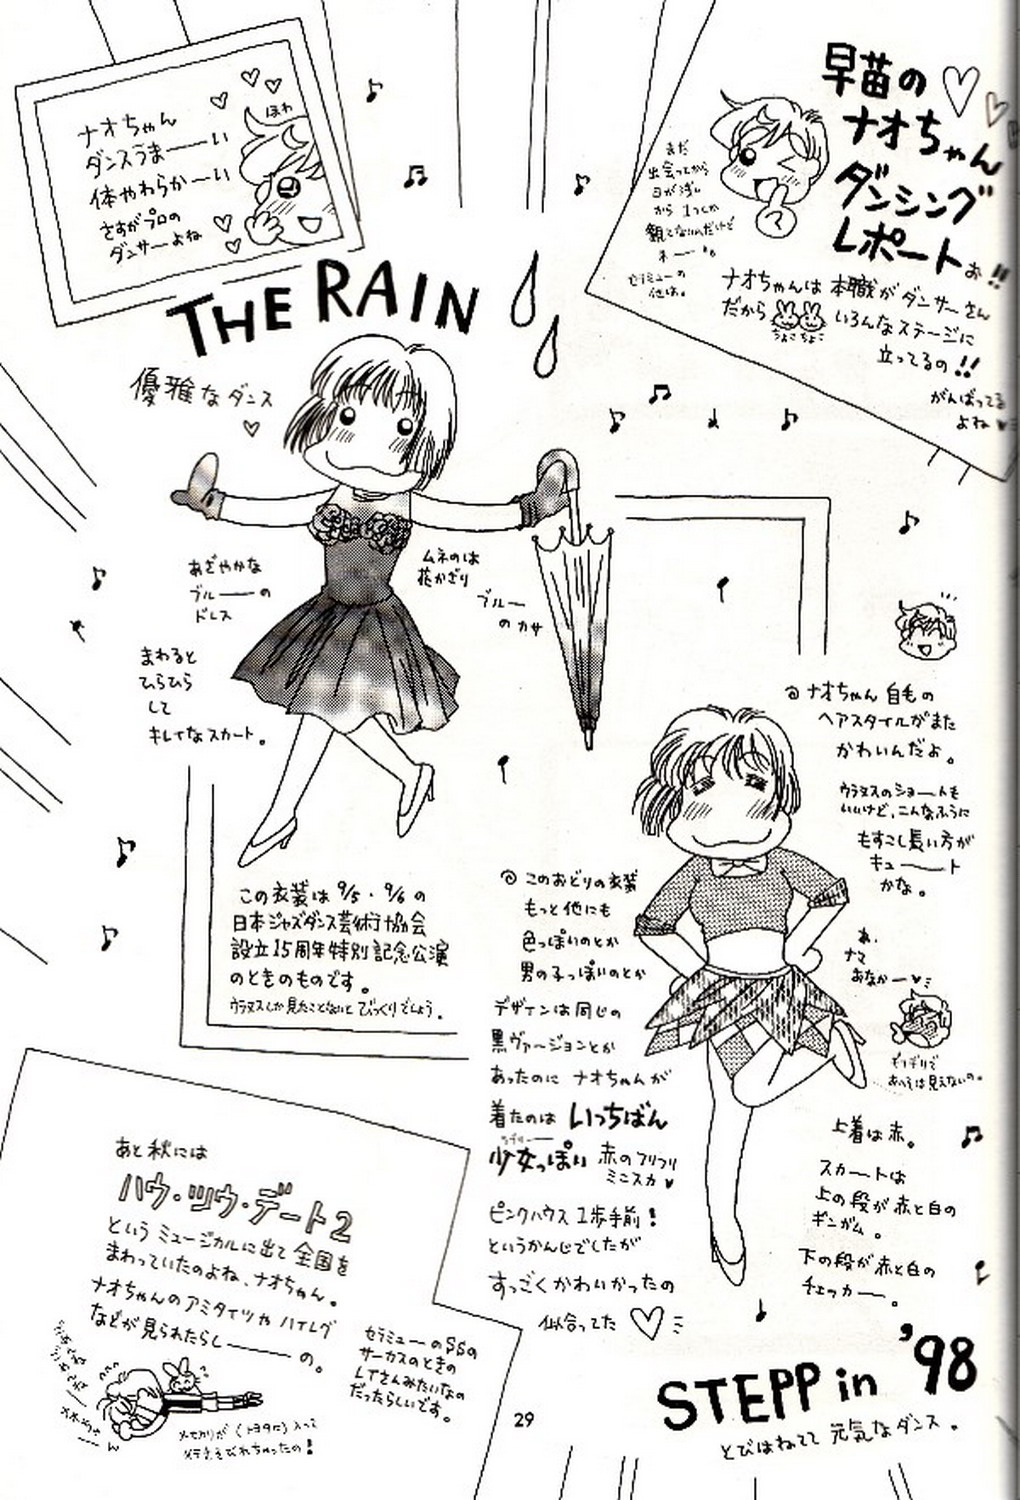 早苗の
ナオちゃん
ダンシング
レポートぉ!!
まだ
出会ってから
日が浅い
から 1つしか
観てないんだけど
ネー
セラミューの
他は。
ナオちゃんは 本職が ダンサーさん
だから いろんなステージに
ちょこちょこ
立ってるの!!
がんばってる
よね♥
ほわ
ナオちゃん
ダンスうまーーい
体やわらかーい
さすがプロの
ダンサーよね
THE RAIN
優雅なダンス
♡
あざやかな
ブルーの
ドレス
ムネのは
花かざり
ブルー
のカサ
まわると
ひらひら
して
キレイなスカート。
この衣装は 9/5・9/6の
日本ジャズダンス芸術協会
設立15周年特別記念公演
のときのものです。
ウラヌスしか見たことないと びっくりでしょう。
ナオちゃん 自毛の
ヘアスタイルがまた
かわいんだよ。
ウラヌスのショートも
いいけど、こんなふうに
もすこし長い方が
キュート
かな。
このおどりの衣装
もっと他にも
色っぽいのとか
男の子っぽいのとか
デザインは同じの
黒ヴァージョンとか
あったのに ナオちゃんが
着たのは いっちばん
少女っぽい 赤のフリフリ
ミニスカ♥
ピンクハウス 1歩手前!
というかんじでしたが
すっごくかわいかったの
似合ってた ♡
あ、
ナマ
おなかー♥
上着は赤。
スカートは
上の段が赤と白の
ギンガム。
下の段が赤と白の
チェッカー。
STEPP in '98
とびはねてて 元気なダンス。
あと 秋には
ハウ・ツウ・デート2
という ミュージカルに出て 全国を
まわっていたのよね、ナオちゃん。
ナオちゃんのアミタイツや ハイレグ
などが見られたらしーーの。
セラミューのSSの
サーカスのときの
LTさんみたいなの
だったらしいです。
29